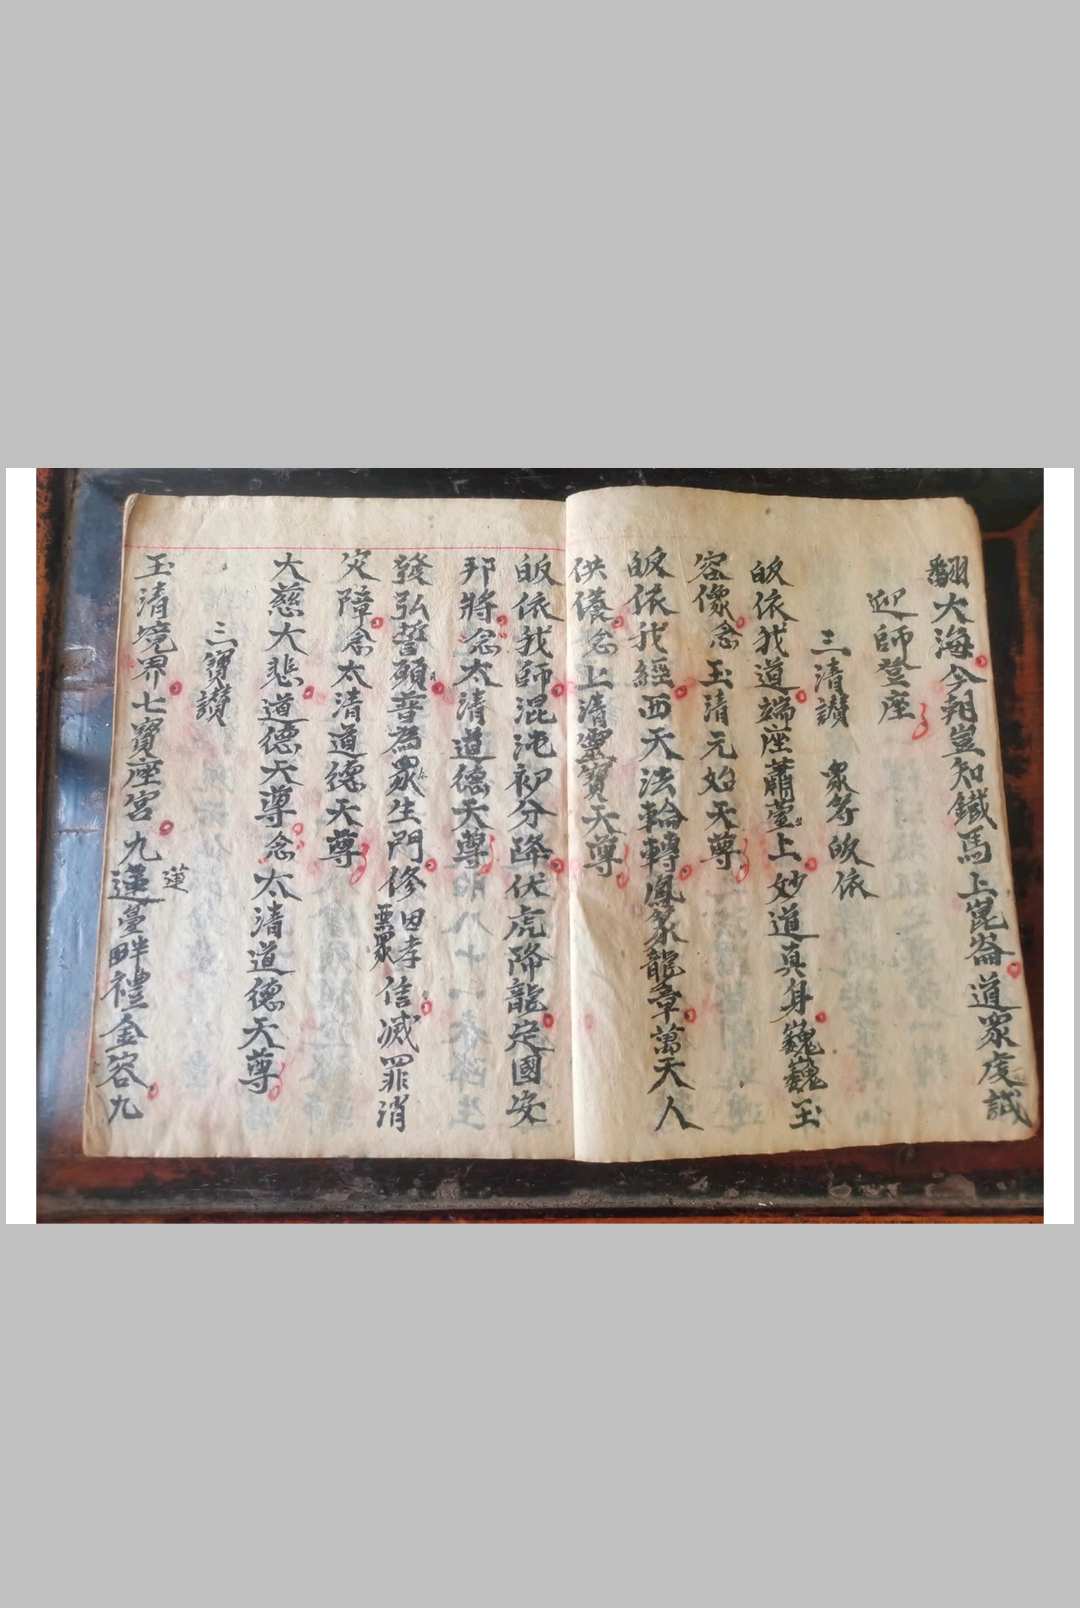 翻大海今朝豈知鐵馬上崑崙道眾虔誠
迎師登座
三清讚 眾等皈依
皈依我道端座蕭臺上妙道真身巍巍玉
容像念玉清元始天尊
皈依我經西天法輪轉鳳篆龍章萬天人
供養念上清靈寶天尊
皈依我師混沌初分降伏虎降龍定國安
邦將念太清道德天尊
發弘誓願普為眾生門修因孝信滅罪消
惡眾
災障念太清道德天尊
大慈大悲道德天尊念太清道德天尊
三寶讚
玉清境界七寶座宮九蓮臺畔禮金容九
蓮